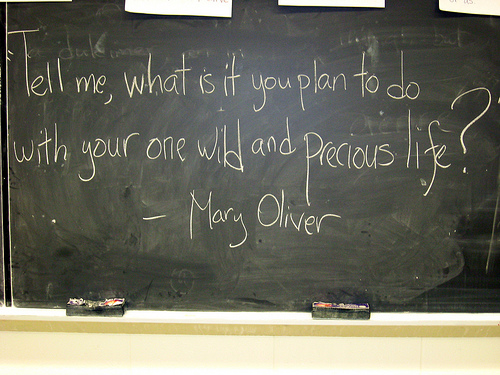 "Tell me, what is it you plan to do
with your one wild and precious life?"
— Mary Oliver